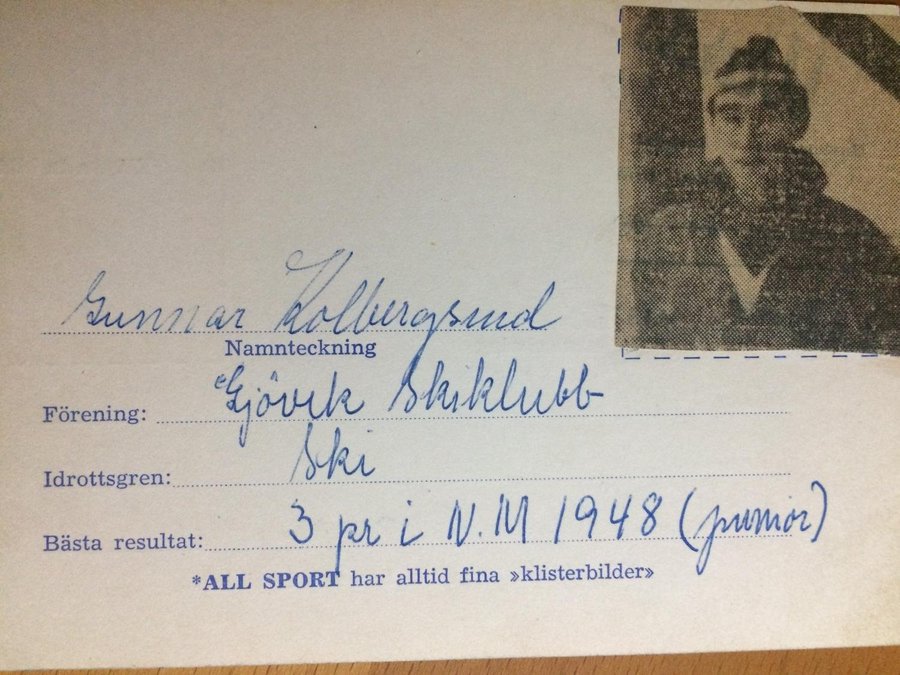 Gunnar Kolbergsrud
Namnteckning
Förening: Gjövik Skiklubb
Idrottsgren: Ski
Bästa resultat: 3 pr i N.M 1948 (junior)
*ALL SPORT har alltid fina »klisterbilder»